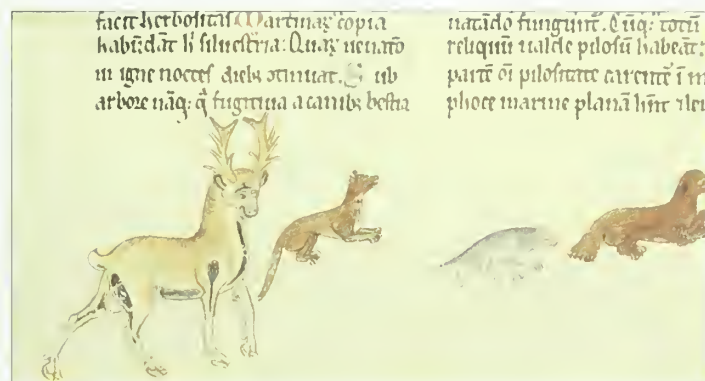 facit herbositas Martinaꝝ copia
habūdāt h̄ silueſtria: Quaꝝ uenatō
in igne noctes diebꝫ ɔtinuat. Sub
arbore nāqꝫ q̄ fugitiua a canibꝫ beſtia
natādo fungunt᷑. Cūqꝫ totū
reliquū ualde piloſū habeāt:
partē oī piloſitate carentē ī
phoce marine planā hn̄t